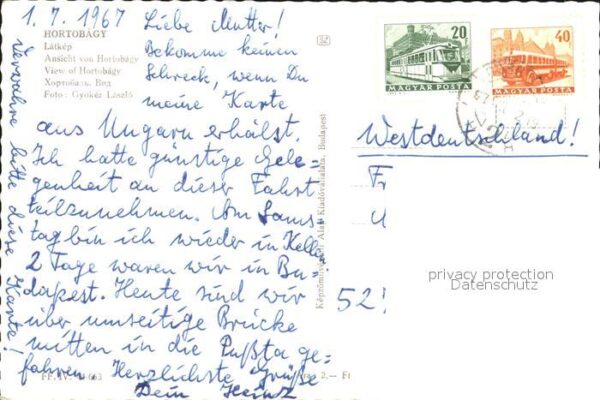 1.7.1967 Liebe Mutter!
HORTOBÁGY
Látkép
Ansicht von Hortobágy
View of Hortobágy
Хортобадь. Вид
Foto: Gyökéz László
Bekomme keinen
Schreck, wenn Du
meine Karte
aus Ungarn erhälst.
Ich hatte günstige Gele=
genheit an dieser Fahrt
teilzunehmen. Am Sams=
tag bin ich wieder in
2 Tage waren wir in Bu=
dapest. Heute sind wir
über umseitige Brücke
mitten in die Pußta ge=
fahren. Herzlichste Grüße
Dein Heinz
Verwahre bitte diese Karte!
Képzőművészeti Alap Kiadóvállalata, Budapest
2.— Ft
20
MAGYAR POSTA
40
MAGYAR POSTA
Westdeutschland!
Fr
U
52!
privacy protection
Datenschutz